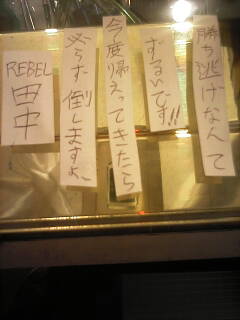 勝ち逃げなんて
ずるいです!!
今度帰えってきたら
必らず倒しますよ~
REBEL
田中